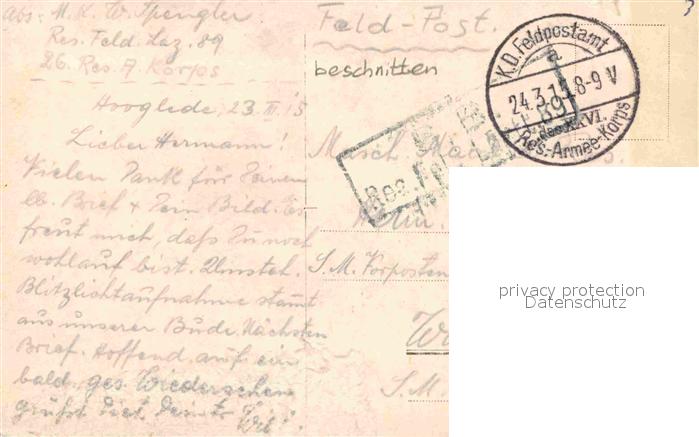 Abs: M. K. W. Spengler
Res. Feld. Laz. 89
26. Res. A. Korps
Hooglede, 23. III. 15
Lieber Hermann!
Vielen Dank für Deinen
lb. Brief & Dein Bild. Es
freut mich, daß Du noch
wohlauf bist. Umsteh.
Blitzlichtaufnahme stammt
aus unserer Bude. Nächstens
Brief. Hoffend auf ein
bald. ges. Wiedersehen
grüßt Dich Dein tr.
Feld-Post.
beschnitten
K.D. Feldpostamt
a
24.3.15. 8-9 V
des XXVI.
Res.-Armee-Korps
Res. Fel
Masch.
S. M. Vorposten
S. M.
privacy protection
Datenschutz